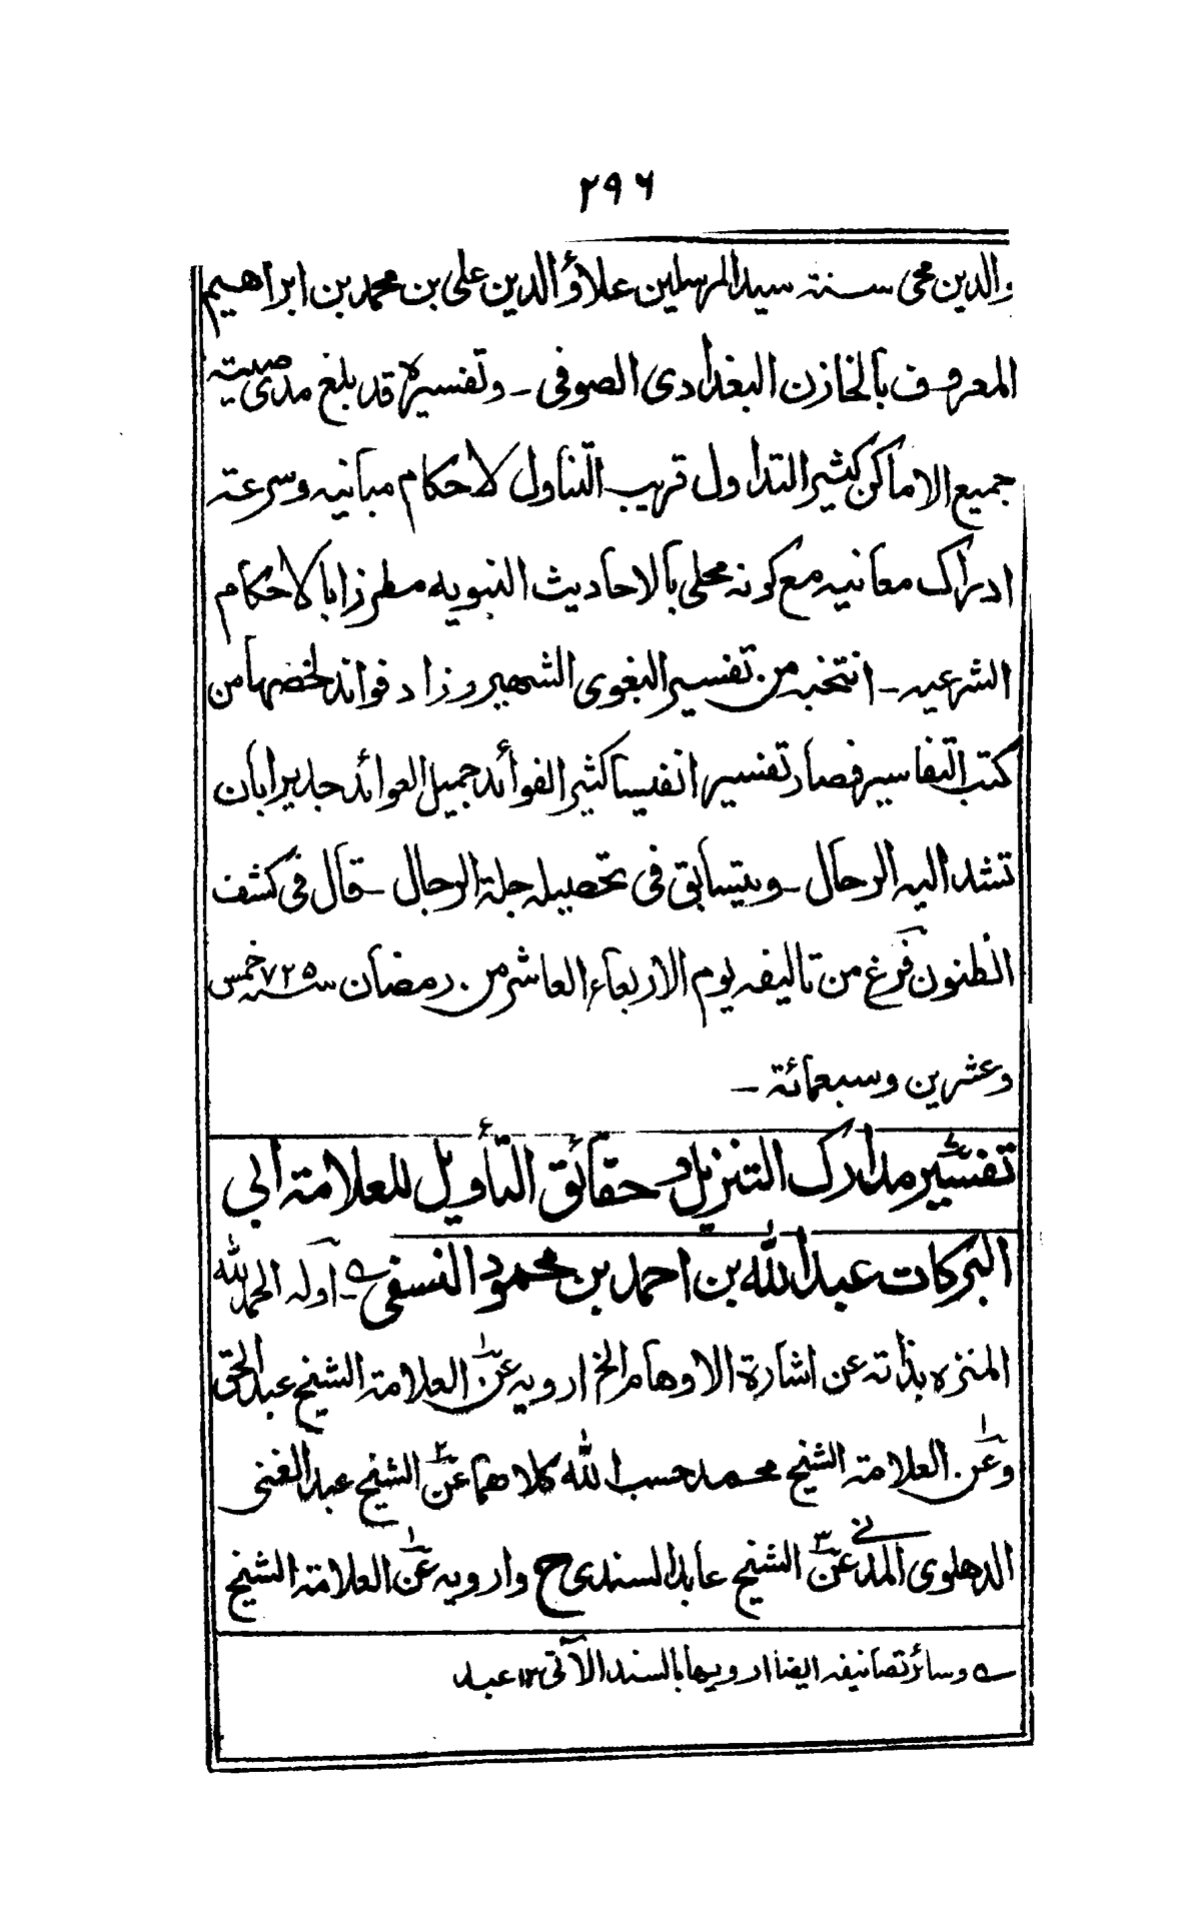 ۲۹۶
والدين محى سنة سيد المرسلين علاؤ الدين على بن محمد بن ابراهيم
المعروف بالخازن البغدادى الصوفى ـ وتفسيره قد بلغ مدى صيته
جميع الاماكن كثير التداول قريب التناول لاحكام مبانيه وسرعة
ادراك معانيه مع كونه محلى بالاحاديث النبويه مطرزا بالاحكام
الشرعيه ـ انتخبه من تفسير البغوى الشهير وزاد فوائد لخصها من
كتب التفاسير فصار تفسيرا نفيسا كثير الفوائد جميل العوائد جديرا بان
تشد اليه الرحال ـ ويتسابق فى تحصيله جلة الرجال ـ قال فى كشف
الظنون فرغ من تاليفه يوم الاربعاء العاشر من رمضان سنه ۷۲۵ خمس
وعشرين وسبعمائة ـ
تفسير مدارك التنزيل و حقائق التأويل للعلامة ابى
البركات عبد الله بن احمد بن محمود النسفى ـ اوله الحمد لله
المنزه بذاته عن اشارة الاوهام الخ ارويه عن العلامة الشيخ عبد الحق
وعن العلامة الشيخ محمد حسب الله كلاهما عن الشيخ عبد الغنى
الدهلوى المدنى عن الشيخ عابد السندى ح وارويه عن العلامة الشيخ
وسائر تصانيفه ايضا ارويها بالسند الآتى ۱۲ عبد